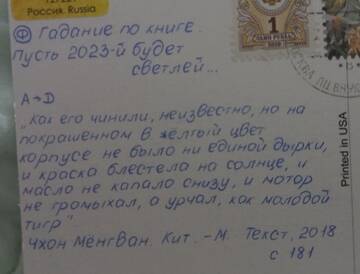 Россия. Russia
Ⓕ Гадание по книге.
Пусть 2023-й будет
светлей...
1
ОДИН РУБЛЬ
A→D
"Как его чинили, неизвестно, но на
покрашенном в жёлтый цвет
корпусе не было ни единой дырки,
и краска блестела на солнце, и
масло не капало снизу, и мотор
не громыхал, а урчал, как молодой
тигр"
Чхон Мёнгван. Кит. - М. Текст, 2018
с 181
Printed in USA